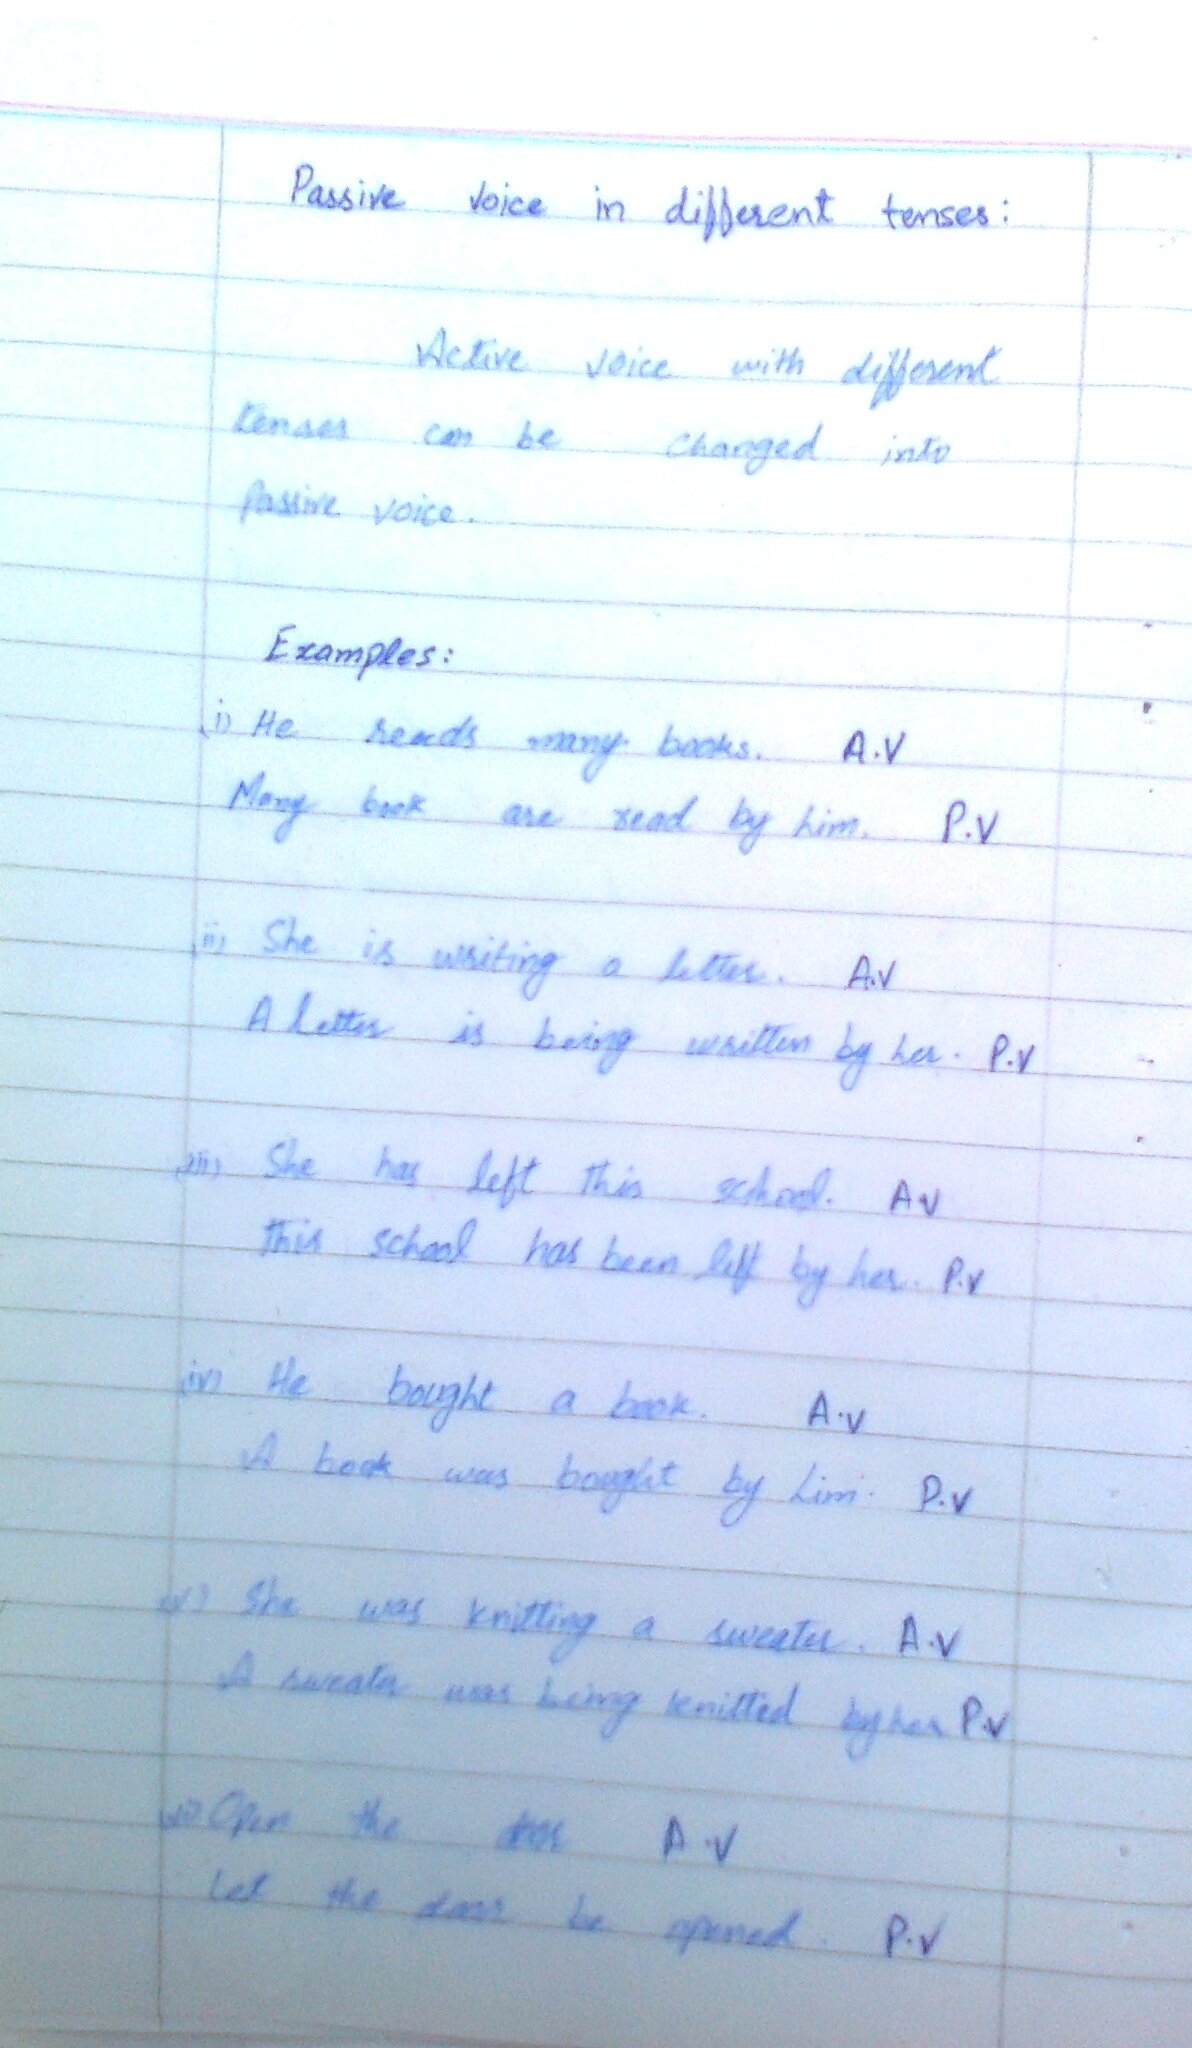 Passive voice in different tenses:
Active voice with different
tenses can be changed into
passive voice.
Examples:
i) He reads many books. A.V
Many book are read by him. P.V
ii) She is writing a letter. A.V
A letter is being written by her. P.V
iii) She has left this school. A.V
This school has been left by her. P.V
iv) He bought a book. A.V
A book was bought by him. P.V
v) She was knitting a sweater. A.V
A sweater was being knitted by her P.V
vi) Open the door A.V
Let the door be opened. P.V